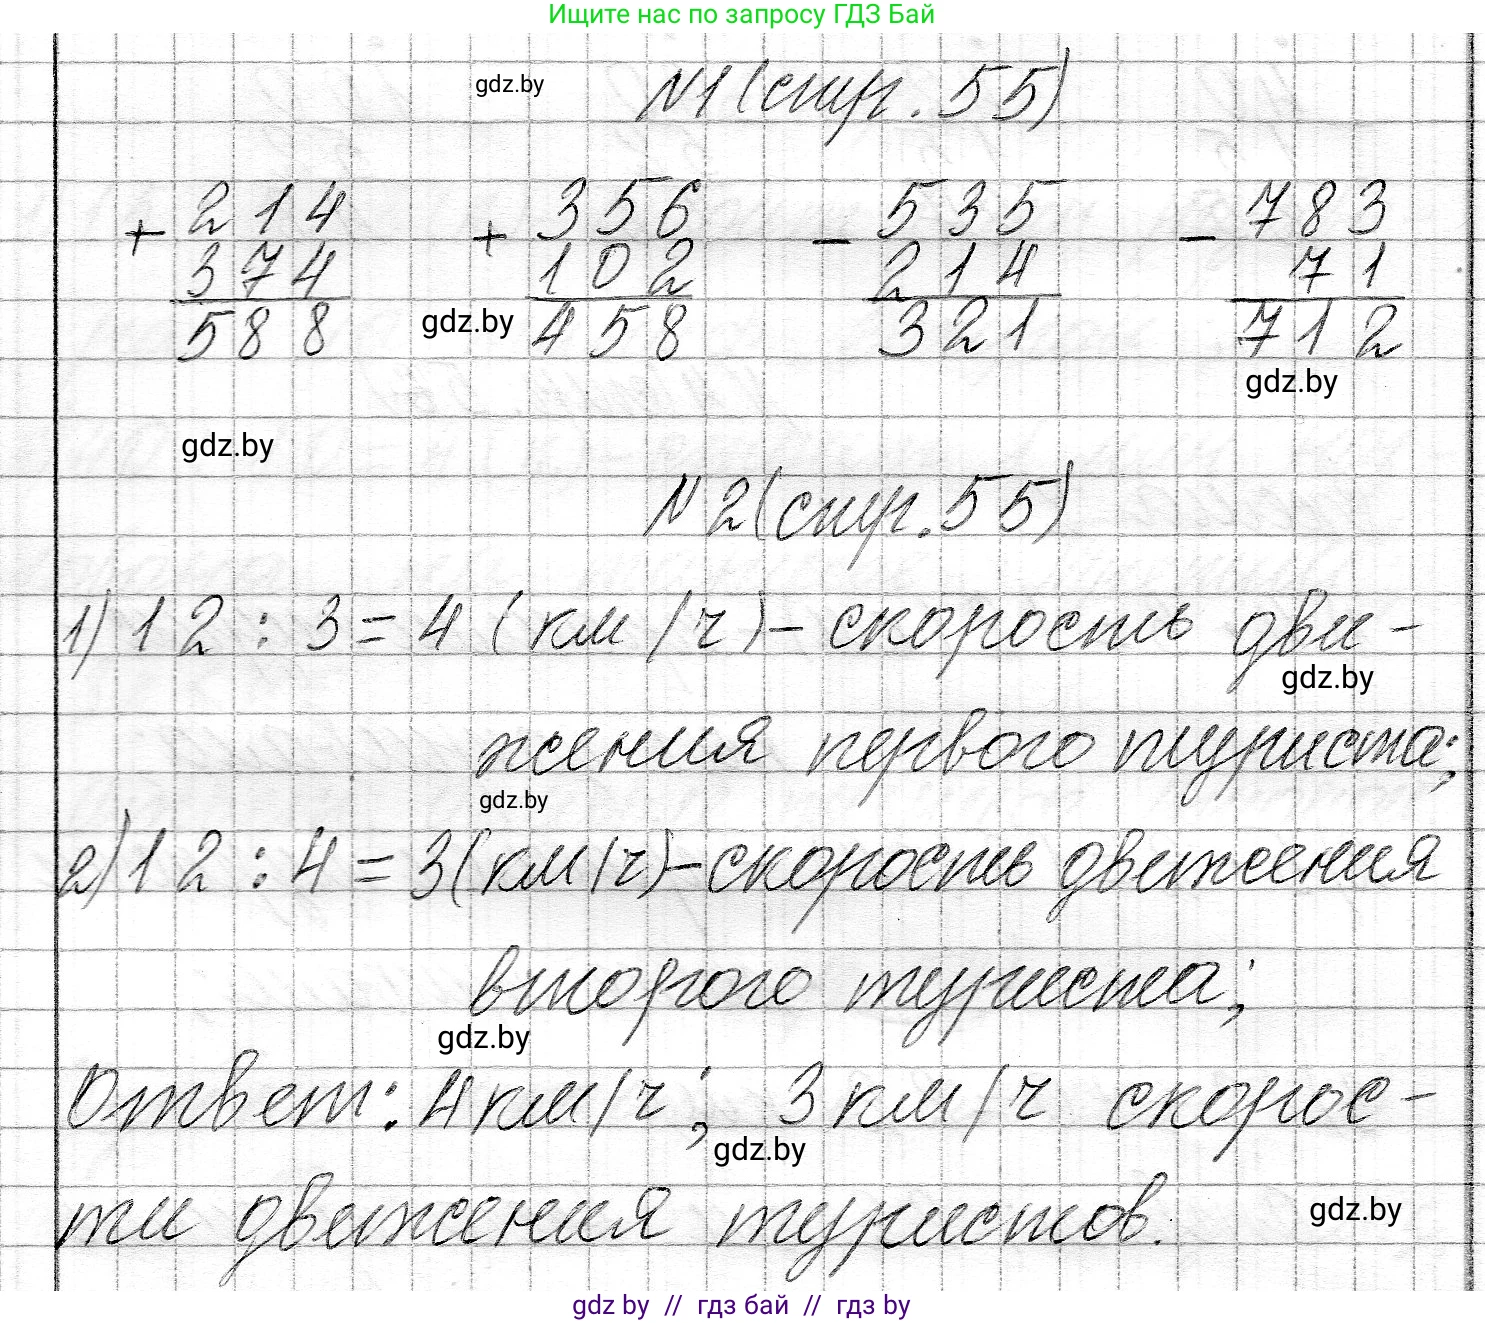 Ищите нас по запросу ГДЗ Бай
gdz.by
№1 (стр. 55)
+ 214 + 356 - 535 - 783
374 102 214 71
588 gdz.by 458 321 712
gdz.by
gdz.by
№2 (стр. 55)
1) 12 : 3 = 4 (км/ч) - скорость дви-
gdz.by
жения первого туриста;
gdz.by
2) 12 : 4 = 3 (км/ч) - скорость движения
второго туриста;
gdz.by
Ответ: 4 км/ч; 3 км/ч скорос-
gdz.by
ти движения туристов.
gdz.by
gdz by // гдз бай // гдз by